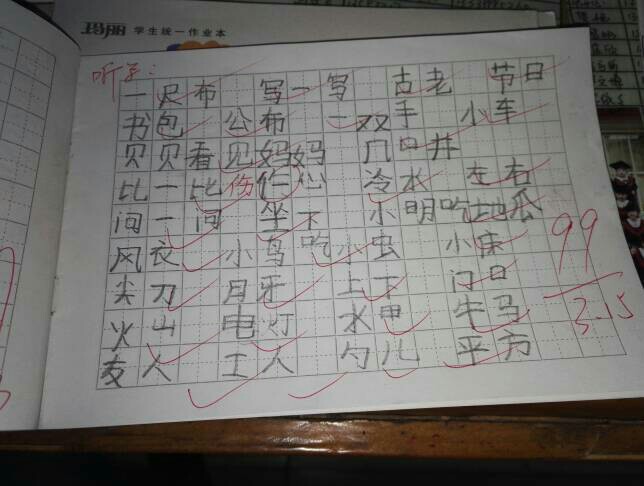 玛丽 学生统一作业本
听写:
一尺布 写一写 古老 节日
书包 公布 一双手 小车
贝贝看见妈妈 几口井
比一比 伤伤心 冷水 左右
间一问 坐下 小明吃地瓜
风衣 小鸟吃小虫 小床
尖刀 月牙 上下 门口
火山 电灯 水甲 牛马
友人 工人 勺儿 平方
99
3.15